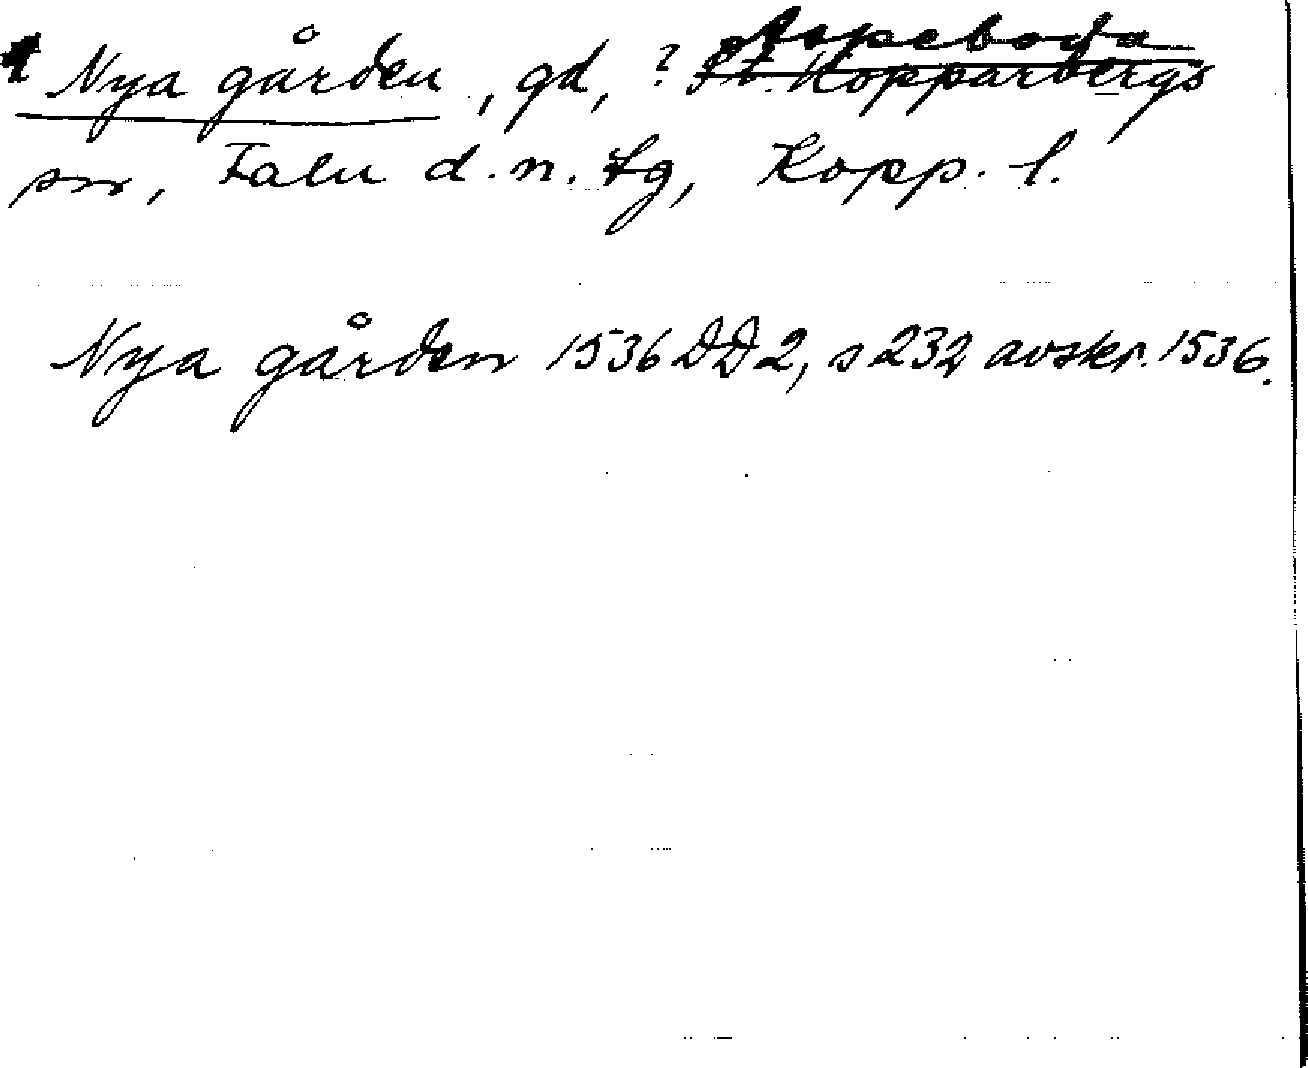 Aspeboda
Nya gården, gd, ? St. Kopparbergs
sn, Falu d.n. tg, Kopp. l.
Nya gården 1536 DD 2, s 232 avskr. 1536.